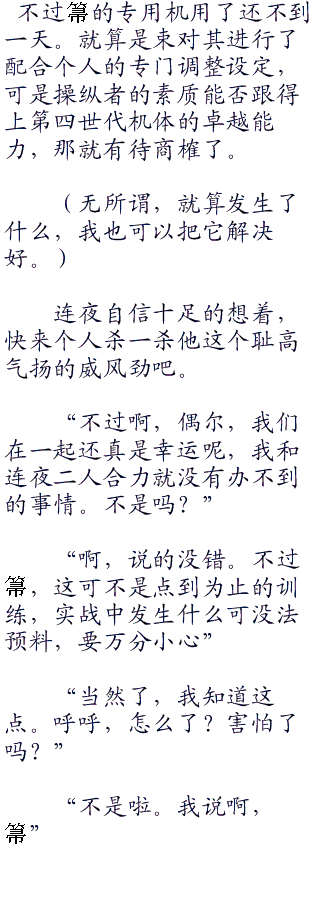 不过箒的专用机用了还不到
一天。就算是束对其进行了
配合个人的专门调整设定，
可是操纵者的素质能否跟得
上第四世代机体的卓越能
力，那就有待商榷了。
（无所谓，就算发生了
什么，我也可以把它解决
好。）
连夜自信十足的想着，
快来个人杀一杀他这个耻高
气扬的威风劲吧。
“不过啊，偶尔，我们
在一起还真是幸运呢，我和
连夜二人合力就没有办不到
的事情。不是吗？”
“啊，说的没错。不过
箒，这可不是点到为止的训
练，实战中发生什么可没法
预料，要万分小心”
“当然了，我知道这
点。呼呼，怎么了？害怕了
吗？”
“不是啦。我说啊，
箒”